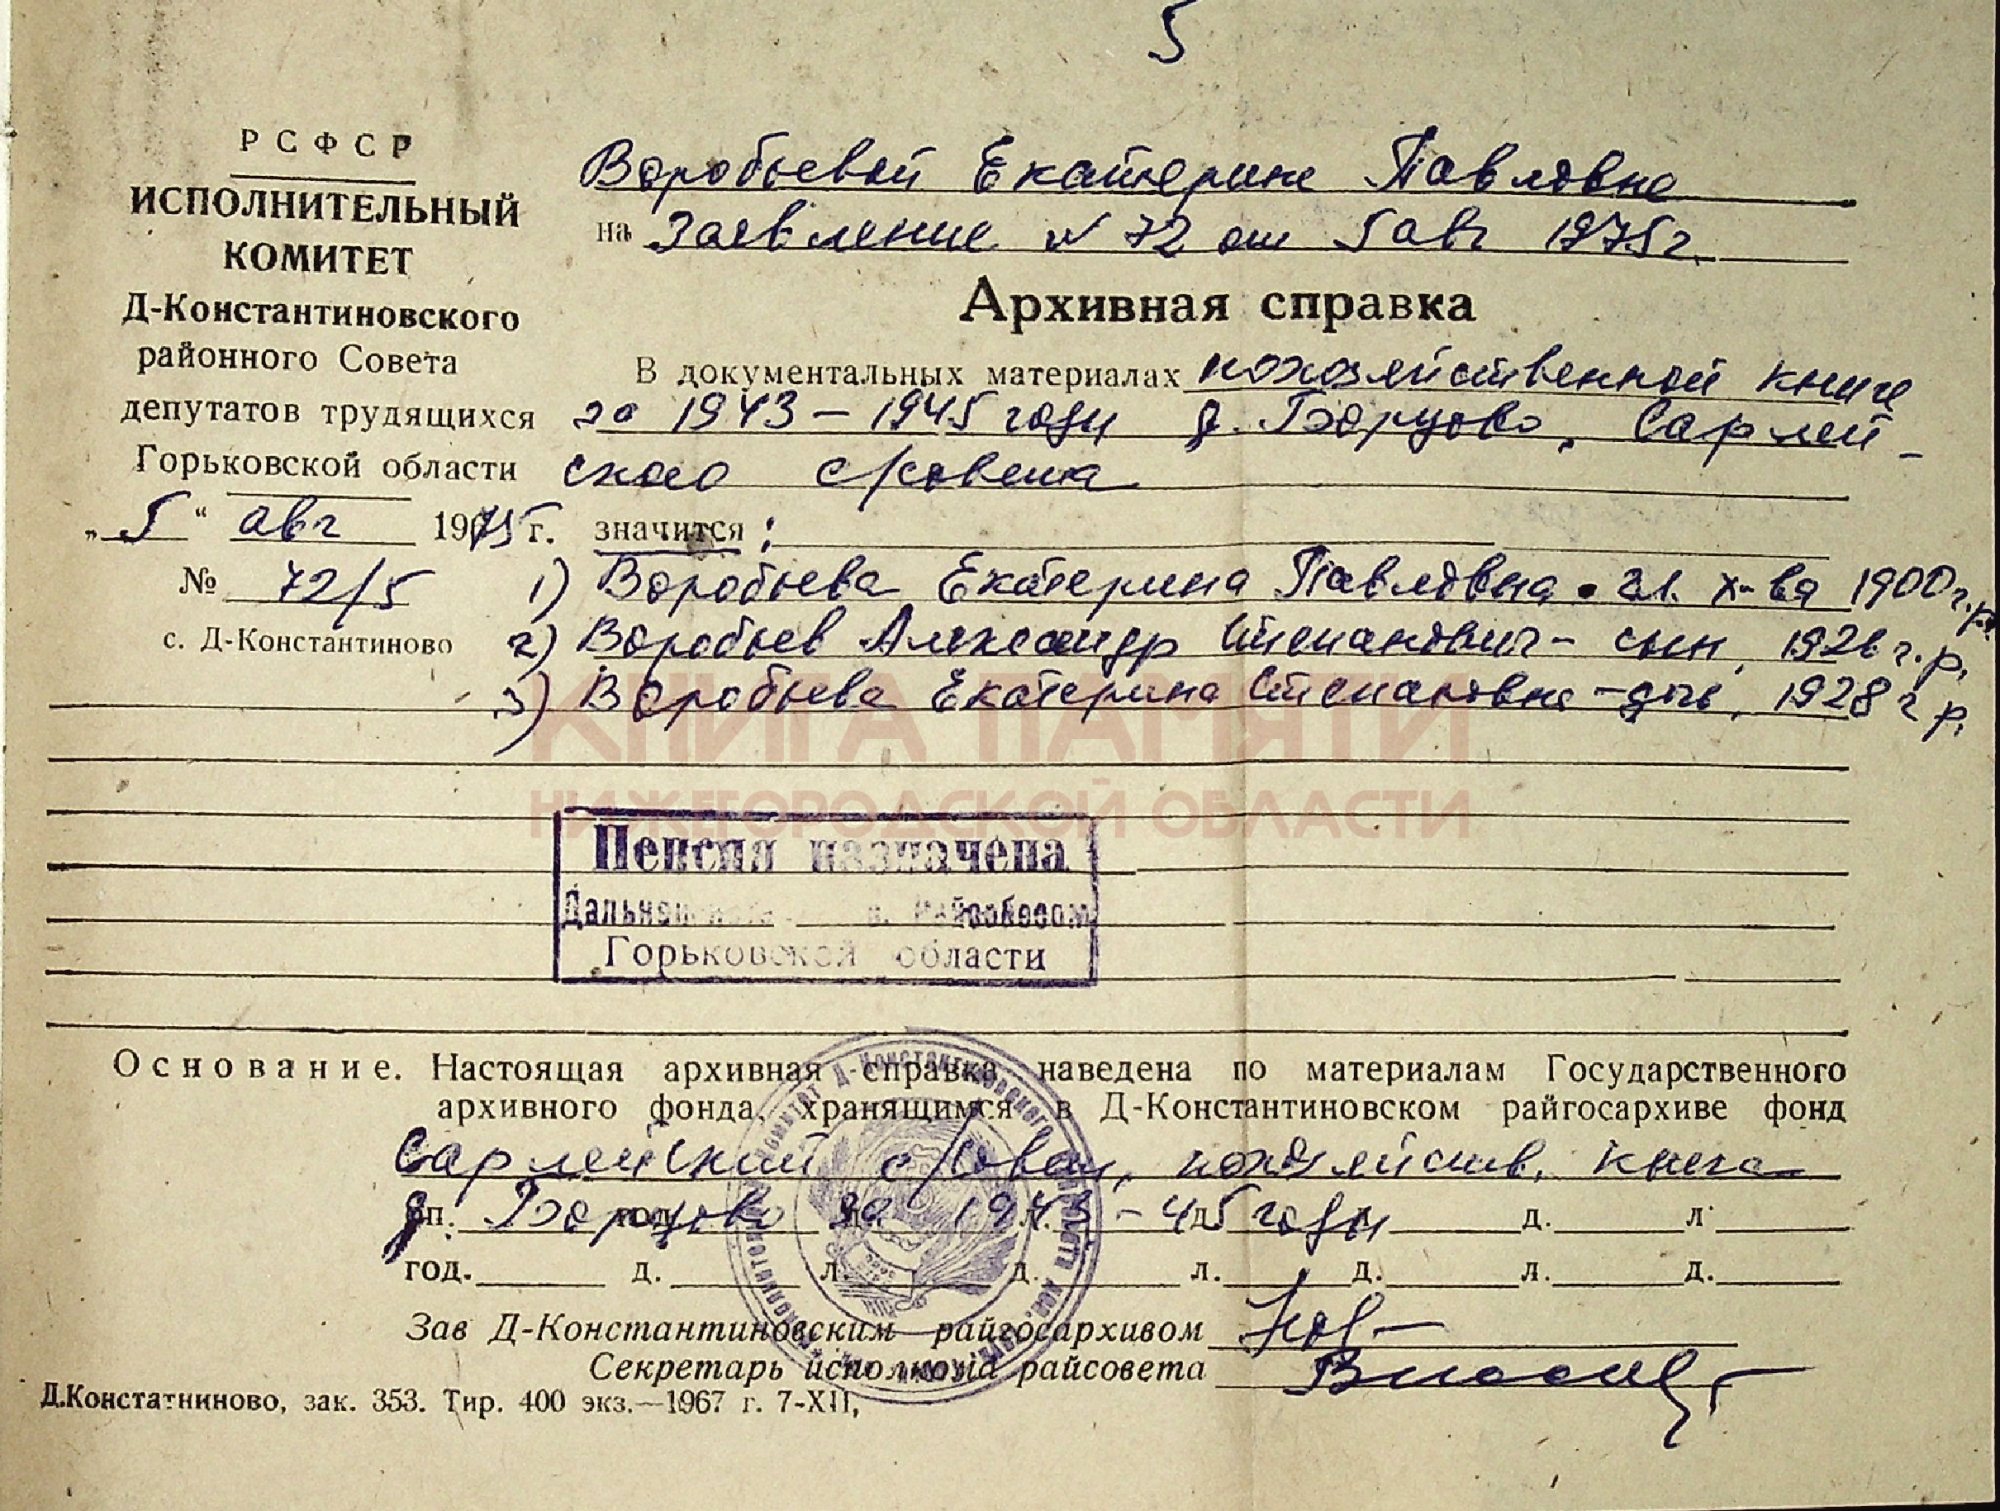 5
РСФСР
ИСПОЛНИТЕЛЬНЫЙ
КОМИТЕТ
Д-Константиновского
районного Совета
депутатов трудящихся
Горьковской области
„5“ авг 1975 г.
№ 72/5
с. Д-Константиново
Воробьевой Екатерине Павловне
на Заявление № 72 от 5 авг 1975 г.
Архивная справка
В документальных материалах похозяйственной книге
за 1943 – 1945 годы д. Борцово, Сарлей-
ского с/совета
значится:
1) Воробьева Екатерина Павловна - гл. х-ва 1900 г.р.
2) Воробьев Александр Степанович - сын, 1926 г.р.
3) Воробьева Екатерина Степановна - дочь, 1928 г р.
КНИГА ПАМЯТИ
НИЖЕГОРОДСКОЙ ОБЛАСТИ
Пенсия назначена
Райсобесом
Горьковской области
Основание. Настоящая архивная справка наведена по материалам Государственного
архивного фонда, хранящимся в Д-Константиновском райгосархиве фонд
Сарлейский с/совет, похозяйств. книга
оп. год д. л. д. л. д. л.
д. Борцово за 1943 – 45 годы
год. д. л. д. л. д. л. д.
Зав Д-Константиновским райгосархивом
Секретарь исполкома райсовета
Д.Констатниново, зак. 353. Тир. 400 экз.—1967 г. 7-XII,